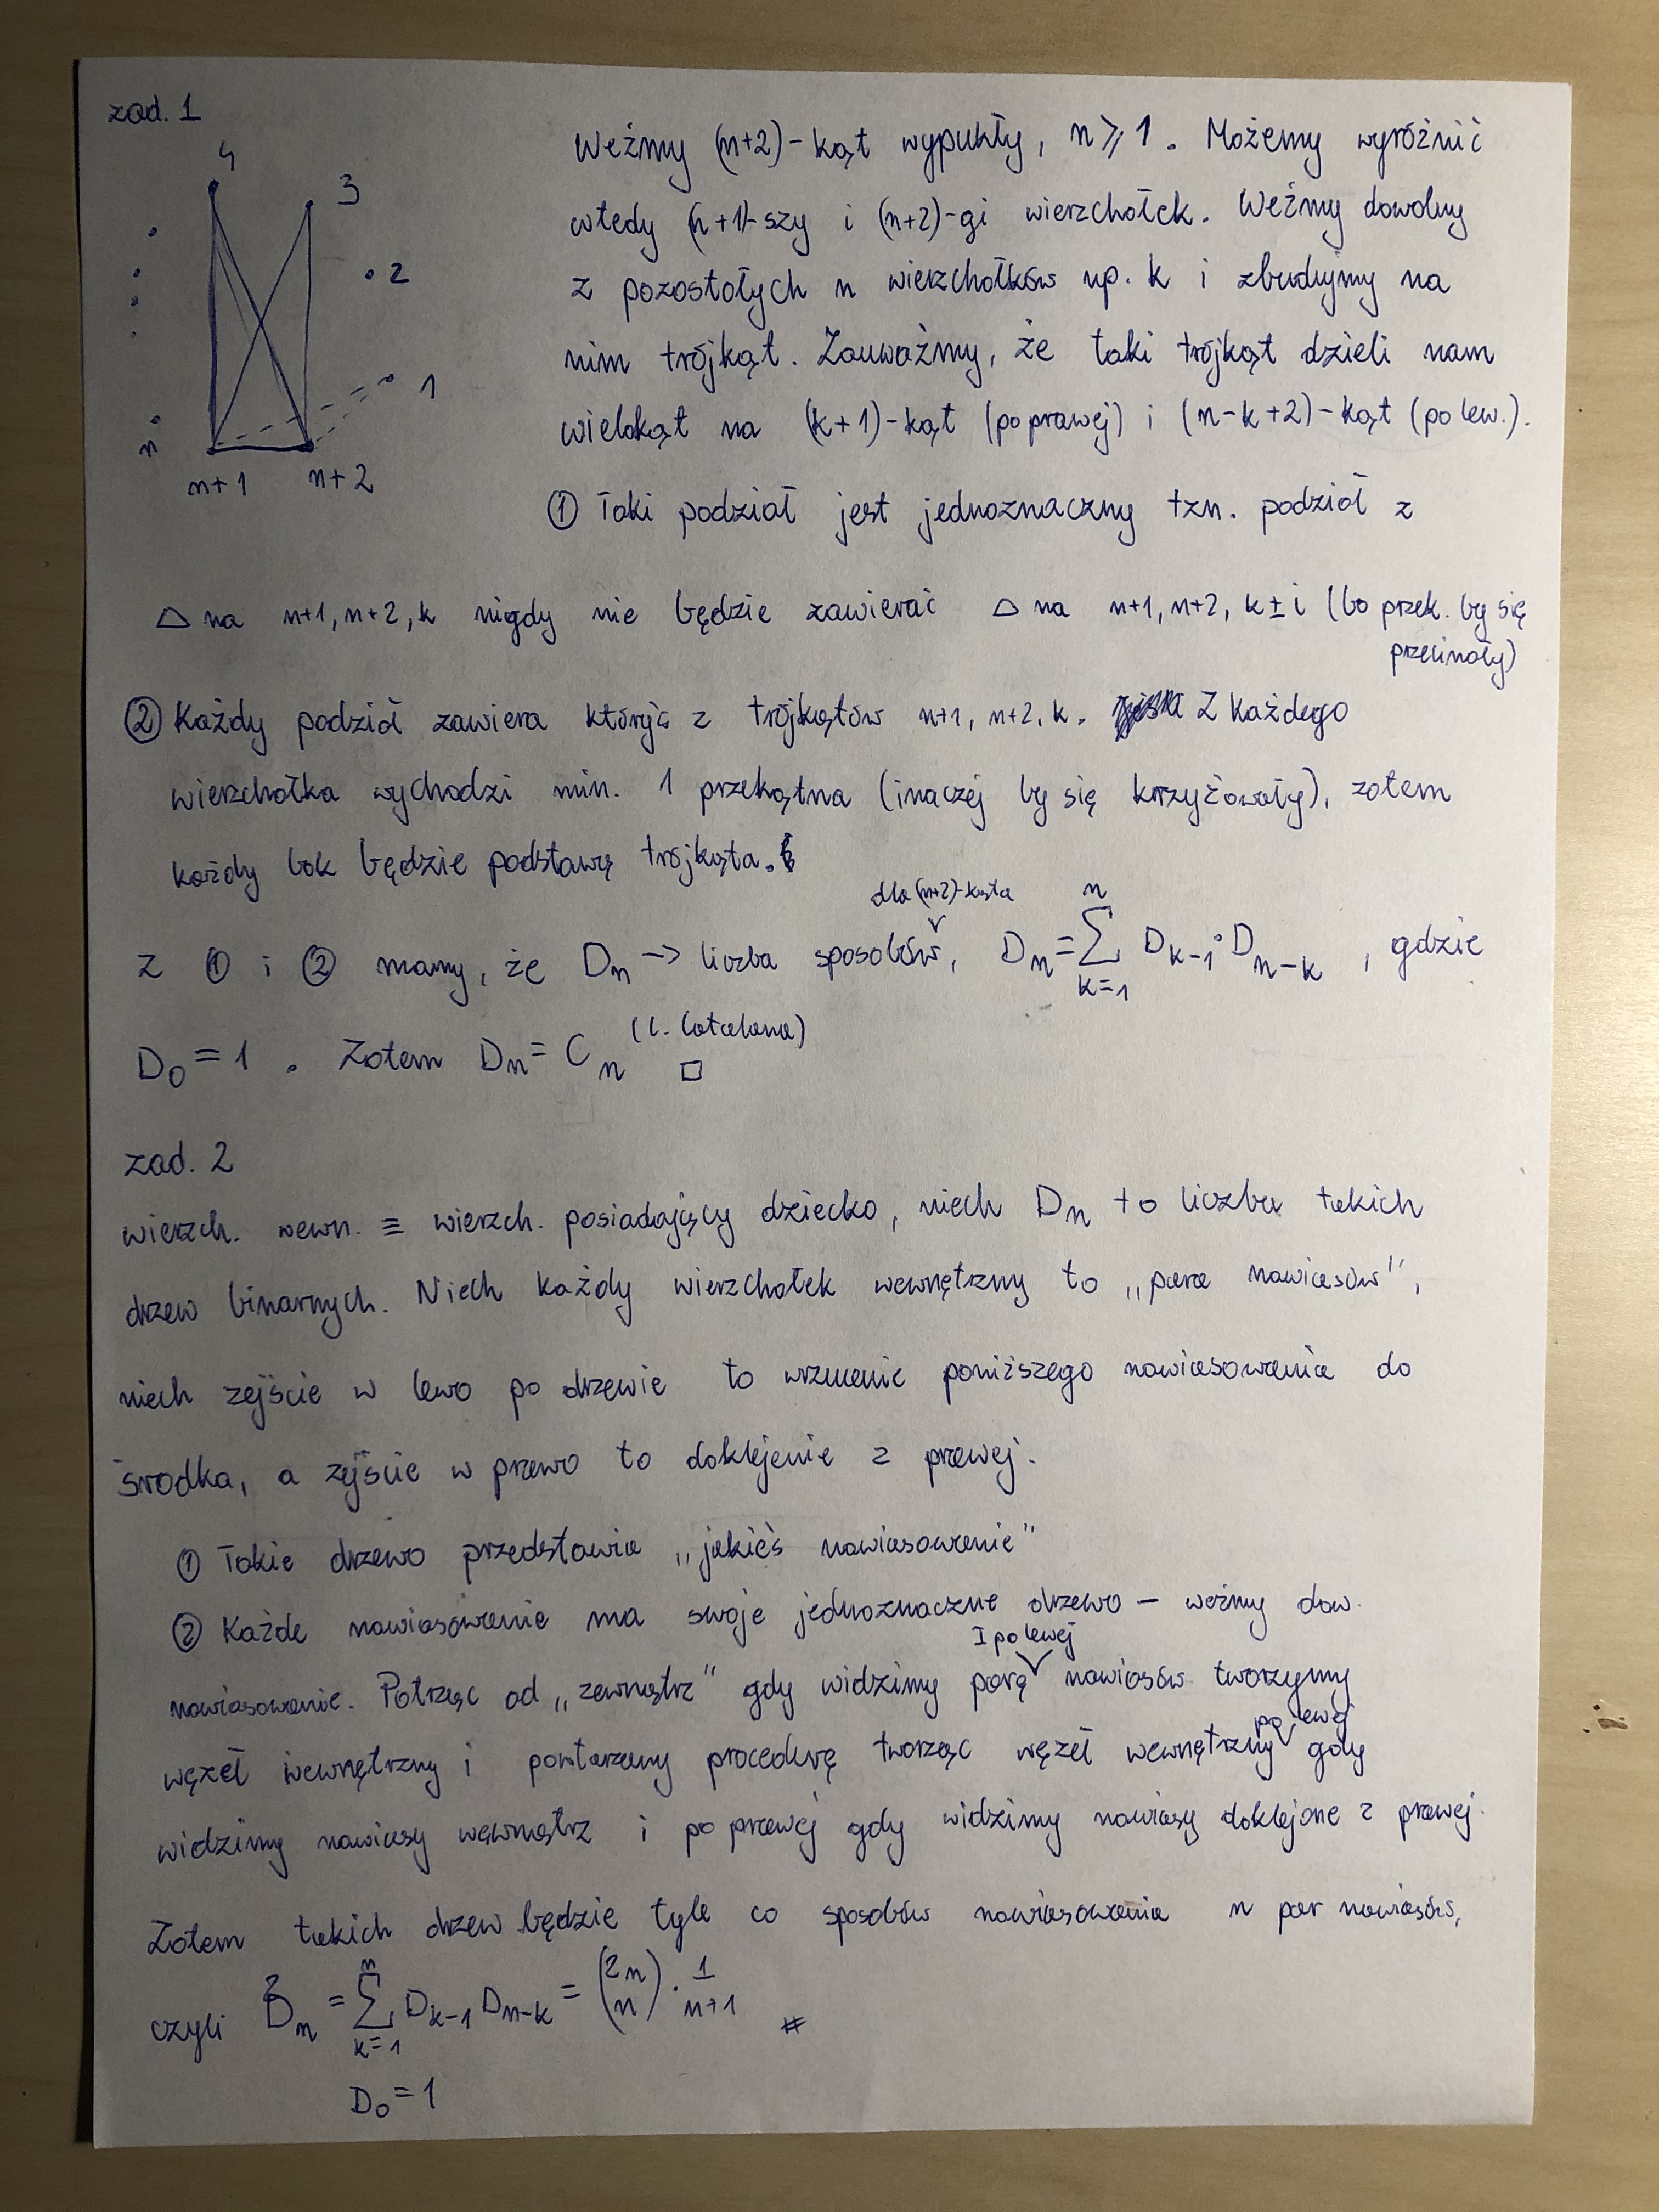 zad. 1
4
3
2
1
n
n+1 n+2
Weźmy (n+2)-kąt wypukły, n ⩾ 1. Możemy wyróżnić
wtedy (n+1)-szy i (n+2)-gi wierzchołek. Weźmy dowolny
z pozostałych n wierzchołków np. k i zbudujmy na
nim trójkąt. Zauważmy, że taki trójkąt dzieli nam
wielokąt na (k+1)-kąt (po prawej) i (n-k+2)-kąt (po lew.).
① Taki podział jest jednoznaczny tzn. podział z
△ na n+1, n+2, k nigdy nie będzie zawierać △ na n+1, n+2, k±i (bo przek. by się
przecinały)
② Każdy podział zawiera któryś z trójkątów n+1, n+2, k. Z każdego
wierzchołka wychodzi min. 1 przekątna (inaczej by się krzyżowały), zatem
każdy bok będzie podstawą trójkąta.
dla (n+2)-kąta
z ① i ② mamy, że Dₙ -> liczba sposobów, Dₙ = ∑ₖ₌₁ⁿ Dₖ₋₁ · Dₙ₋ₖ , gdzie
D₀ = 1 . Zatem Dₙ = Cₙ (l. Catalana) □
zad. 2
wierzch. wewn. ≡ wierzch. posiadający dziecko, niech Dₙ to liczba takich
drzew binarnych. Niech każdy wierzchołek wewnętrzny to „para nawiasów",
niech zejście w lewo po drzewie to wrzucenie poniższego nawiasowania do
środka, a zejście w prawo to doklejenie z prawej.
① Takie drzewo przedstawia „jakieś nawiasowanie"
② Każde nawiasowanie ma swoje jednoznaczne drzewo – weźmy dow.
I po lewej
nawiasowanie. Patrząc od „zewnątrz" gdy widzimy parę nawiasów tworzymy
po lewej
węzeł wewnętrzny i powtarzamy procedurę tworząc węzeł wewnętrzny gdy
widzimy nawiasy wewnątrz i po prawej gdy widzimy nawiasy doklejone z prawej.
Zatem takich drzew będzie tyle co sposobów nawiasowania n par nawiasów,
czyli Dₙ = ∑ₖ₌₁ⁿ Dₖ₋₁ Dₙ₋ₖ = (2n n) · 1/(n+1) #
D₀ = 1